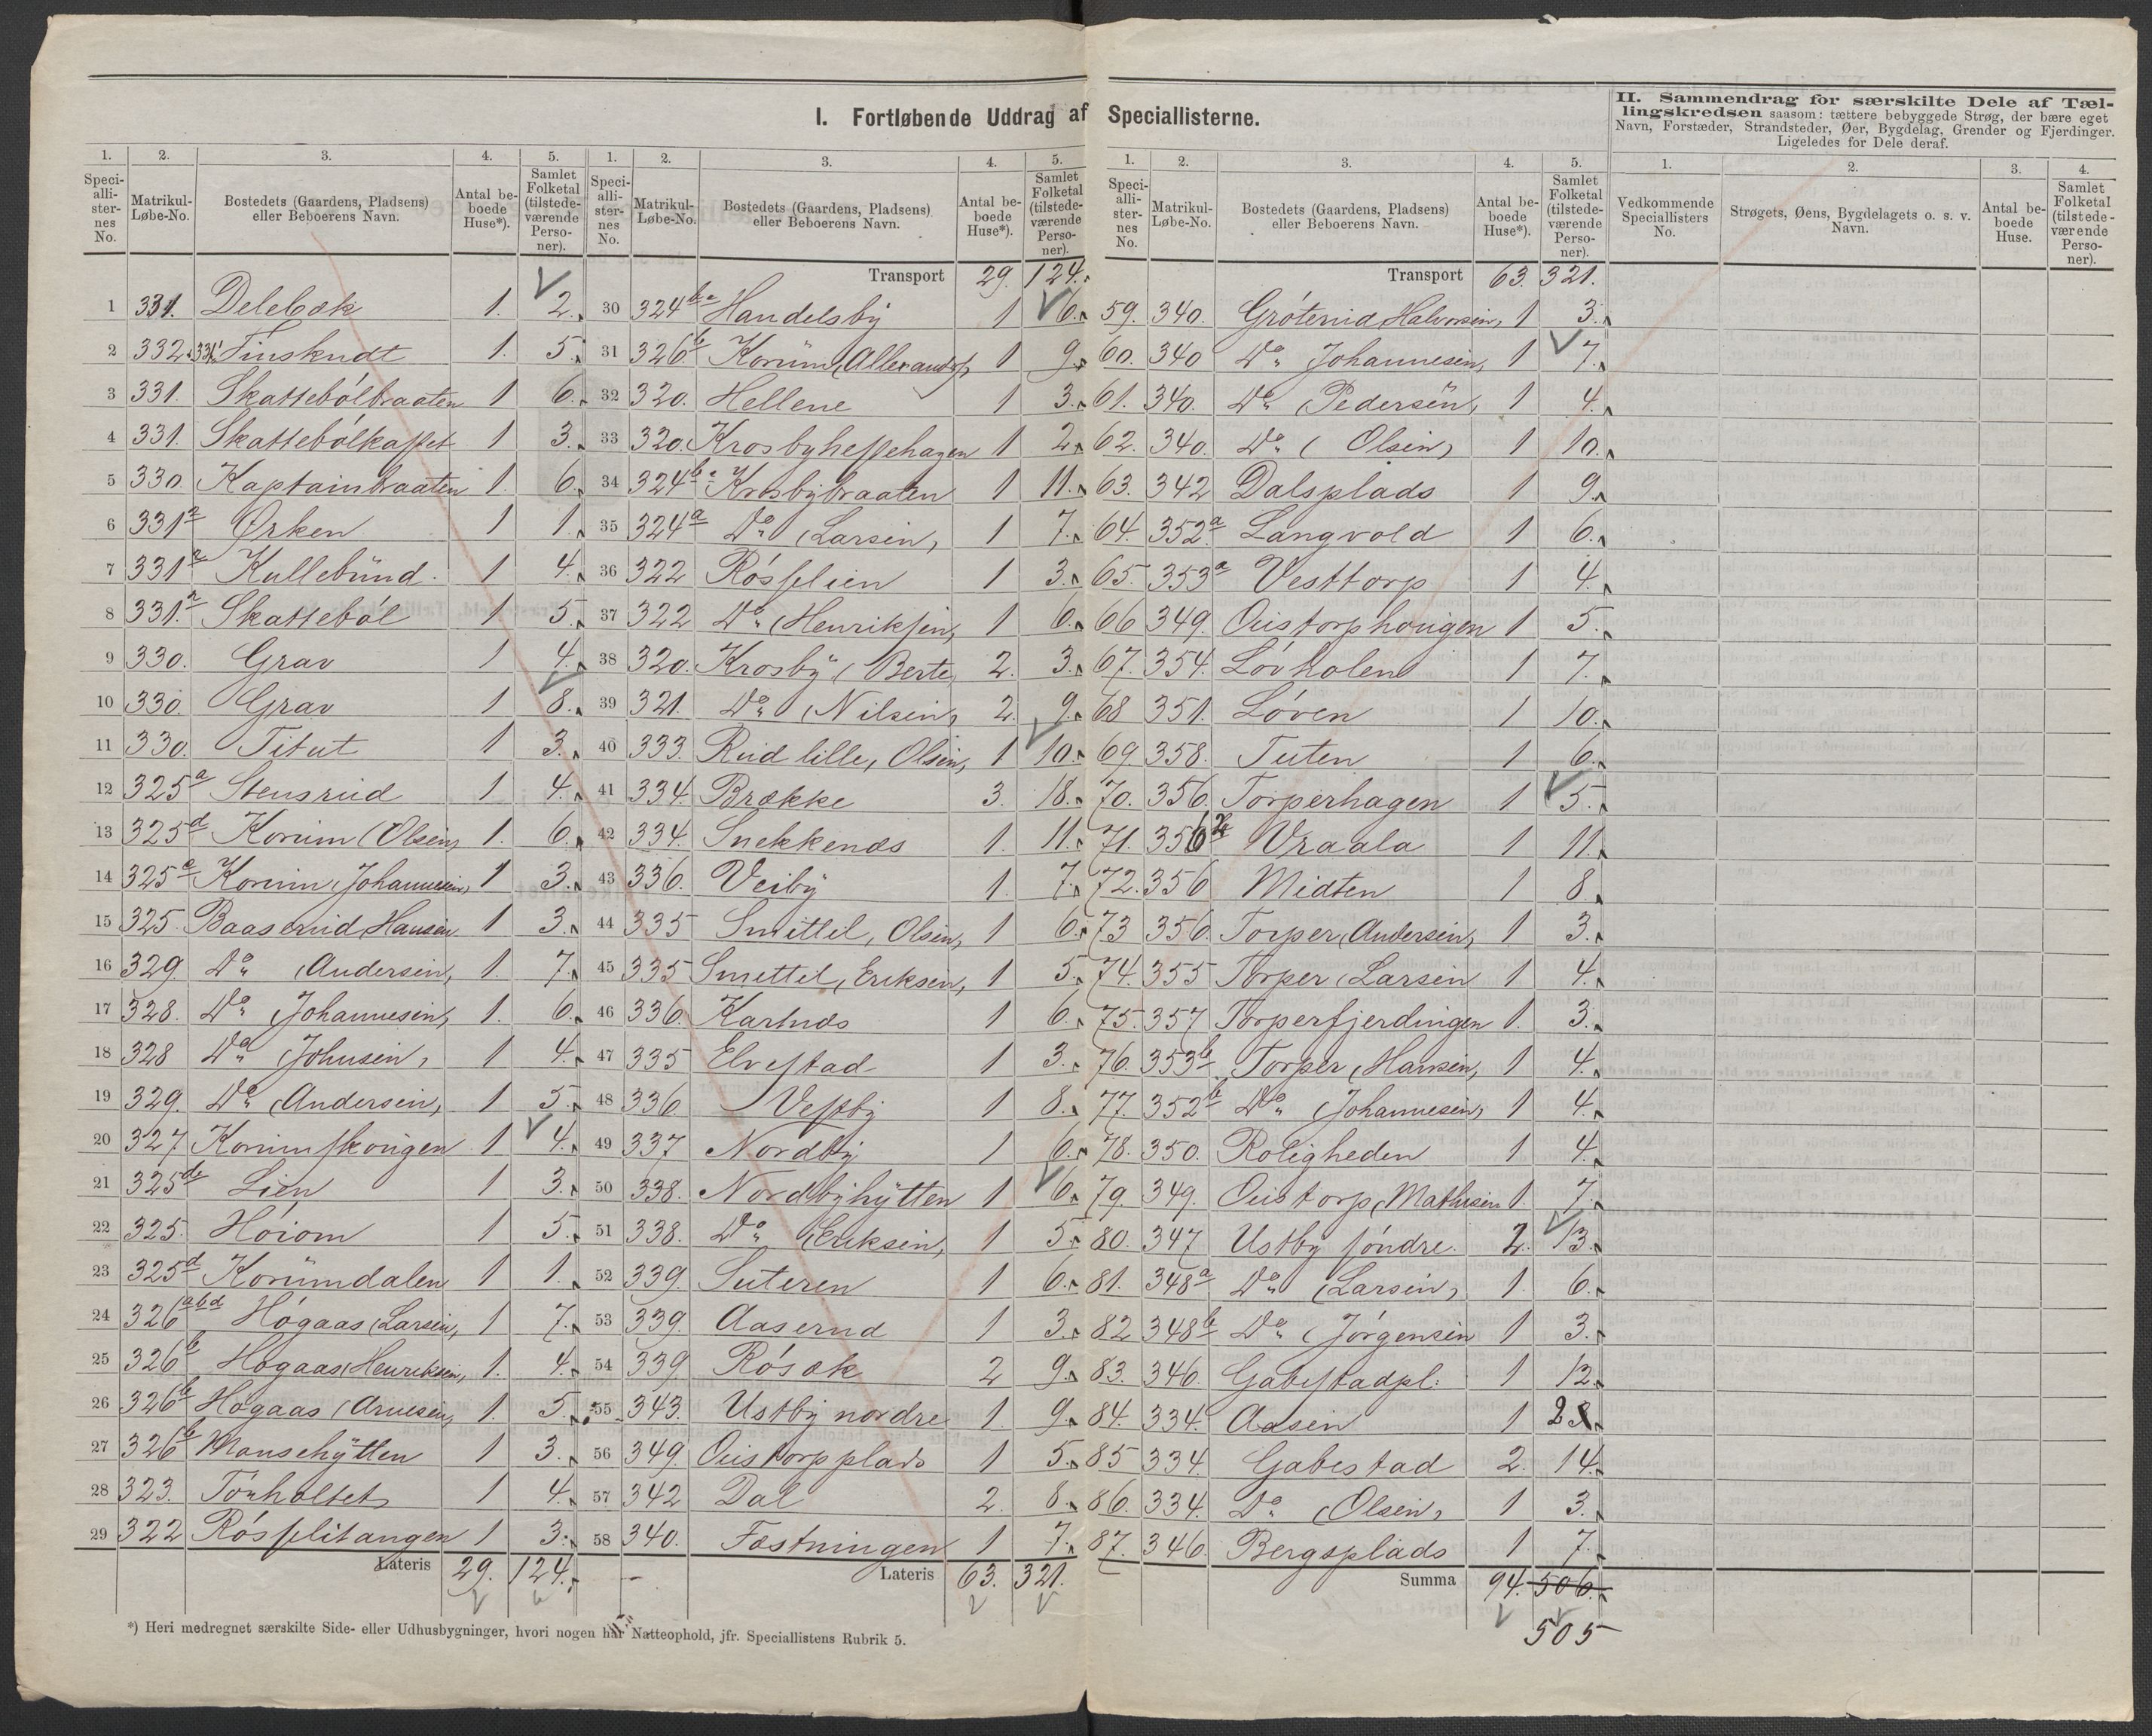 I. Fortløbende Uddrag af Speciallisterne.
II. Sammendrag for særskilte Dele af Tællingskredsen saasom: tættere bebyggede Strøg, der bære eget
Navn, Forstæder, Strandsteder, Øer, Bygdelag, Grender og Fjerdinger.
Ligeledes for Dele deraf.
1. 2. 3. 4. 5.
Speciallisternes No. Matrikul-Løbe-No. Bostedets (Gaardens, Pladsens) eller Beboerens Navn. Antal beboede Huse*). Samlet Folketal (tilstedeværende Personer).
1 331. Delebæk 1. 2.
2 332. 331 Finskudt 1. 5.
3 331. Skattebölbraaten 1 6.
4 331. Skattebölkasset 1 3.
5 330. Kaptainbraaten 1. 6.
6 331a Ørken 1 1.
7 331a Kullebünd 1 4.
8 331.a Skatteböl 1 5.
9 330. Grav 1 4.
10 330. Grav 1 8.
11 330. Titut 1 3.
12 325a Stensrud 1 4.
13 325d Korüm (Olsen) 1. 6.
14 325a Korüm, Johannesen, 1 3.
15 325. Baaserud, Hansen 1 3.
16 329. Do (Andersen, 1. 7.
17 328. Do Johannesen, 1. 6.
18 328 Do Johnsen, 1 4.
19 329. Do (Andersen, 1 5.
20 327. Korumskougen 1 4.
21 325de Lien 1 3.
22 325. Höiom 1 5.
23 325d Korümdalen 1 1.
24 326abd Högaas (Larsen, 1 7.
25 326b Högaas (Henriksen, 1. 4.
26 326b Högaas (Arnesen, 1. 5.
27 326b Mansehÿtten 1 3.
28 323. Tönholtet 1 4.
29 322 Rösslitangen 1 3.
Lateris 29. 124.
1. 2. 3. 4. 5.
Speciallisternes No. Matrikul-Løbe-No. Bostedets (Gaardens, Pladsens) eller Beboerens Navn. Antal beboede Huse*). Samlet Folketal (tilstedeværende Personer).
Transport 29. 124.
30 324b Handelsbÿ 1 6.
31 326b Korüm 1 9.
32 320. Hellene 1 3.
33 320. Krosbyhessehagen 1 2.
34 324b Krosbÿbraaten 1 11.
35 324a Do (Larsen, 1 7.
36 322 Rösslien 1 3.
37 322 Do (Henriksen, 1 6.
38 320. Krosbÿ (Berte, 2. 3.
39 321. Do (Nilsen, 2. 9.
40 333. Rud lille, Olsen, 1 10.
41 334. Brække 3. 18.
42 334. Snekkenes 1. 11.
43 336. Veibÿ 1. 7.
44 335 Smittil, Olsen, 1 6.
45 335 Smittil, Eriksen, 1 5.
46 336. Karlnes 1 6.
47 335 Elvestad 1 3.
48 336. Vestby 1 8.
49 337 Nordby 1 6.
50 338. Nordbÿhÿtten 1 6.
51 338. Do (Eriksen, 1 5.
52 339. Suteren 1 6.
53 339. Aaserud 1 3.
54 339 Rösæk 2 9.
55 343. Ustbÿ nordre 1. 9.
56 349. Ouistorpplads 1 5.
57 342 Dal 2. 8.
58 340. Fæstningen 1 7.
Lateris 63. 321.
1. 2. 3. 4. 5.
Speciallisternes No. Matrikul-Løbe-No. Bostedets (Gaardens, Pladsens) eller Beboerens Navn. Antal beboede Huse*). Samlet Folketal (tilstedeværende Personer).
Transport 63. 321.
59. 340. Gröterud, Halvorsen, 1 3.
60. 340 Do Johannesen, 1 7.
61. 340. Do (Pedersen, 1 4.
62. 340. Do (Olsen) 1 10.
63. 342 Dalsplads 1 9.
64. 352a Langvold 1 6.
65. 353a Vesttorp 1 4.
66 349. Ouistorphougen 1 5.
67. 354. Lövholen 1 7.
68 351. Löven 1 10.
69 358. Tuten 1 6.
70. 356. Torperhagen 1 5.
71. 356 Vraala 1 11.
72. 356 Midten 1 8.
73 356. Torper, Andersen, 1 3.
74. 355 Torper, Larsen 1 4.
75. 357 Torperfjerdingen 1. 3.
76. 353b Torper, Hansen, 1 4.
77. 352b Do Johannesen, 1 4.
78. 350. Roligheden 1 4.
79. 349. Ouistorp, Mathisen 1 7.
80. 347 Ustby söndre. 2. 13.
81. 348a Do (Larsen, 1. 6.
82 348b Do (Jörgensen 1 3.
83. 346. Gabestadpl. 1 12.
84. 334. Aasen 1 2
85 334. Gabestad 2. 14.
86. 334. Do (Olsen, 1 3.
87. 346. Bergsplads 1 7.
Summa 94. 506.
505
1. 2. 3. 4.
Vedkommende Speciallisters No. Strøgets, Øens, Bygdelagets o. s. v. Navn. Antal beboede Huse. Samlet Folketal (tilstedeværende Personer).
*) Heri medregnet særskilte Side- eller Udhusbygninger, hvori nogen har Natteophold, jfr. Speciallistens Rubrik 5.